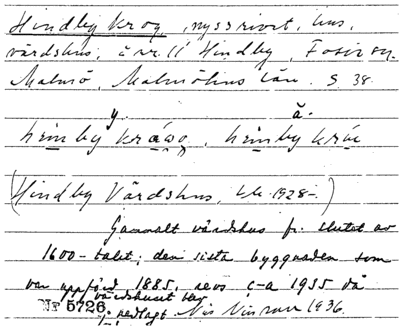 Hindby krog, nyss rivet, hus,
värdshus, å nr. 11 Hindby, Fosie sn.
Malmö, Malmöhus län. S 38.
y. ă.
hinby , hinby
(Hindby Värdshus, 1928-.)
Gammalt värdshus fr. slutet av
1600-talet; den sista byggnaden som
var uppförd 1885, revs c-a 1935 då
värdshuset blev
Nº 5726 nedlagt 1936.